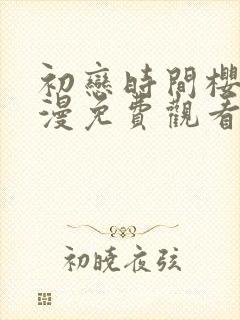 初戀時間櫻
漫免費觀看
初曉夜弦